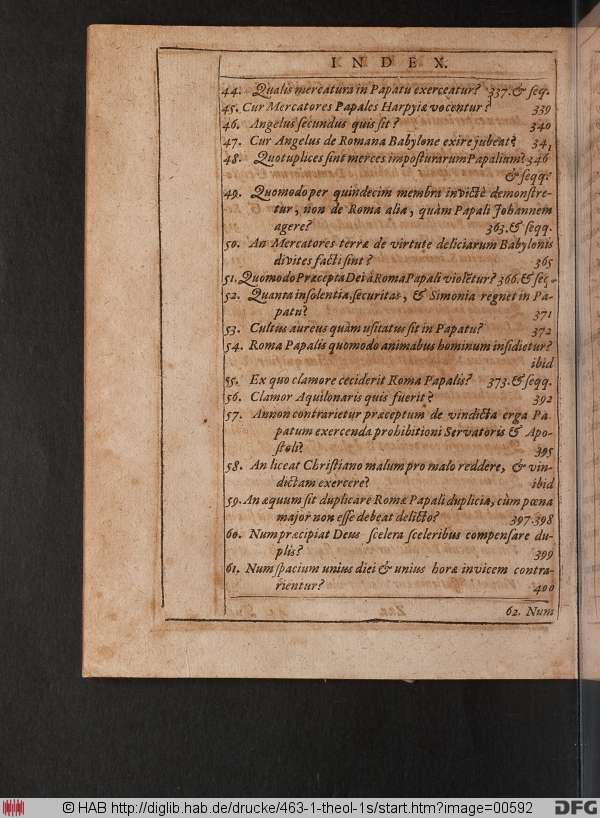 INDEX.
44. Qualis mercatura in Papatu exerceatur? 337. & ſeq.
45. Cur Mercatores Papales Harpyiæ vocentur? 339
46. Angelus ſecundus quis ſit? 340
47. Cur Angelus de Romana Babylone exire jubeat? 341
48. Quotuplices ſint merces impoſturarum Papalium? 346
& ſeqq.
49. Quomodo per quindecim membra invictè demonſtre-
tur, non de Roma alia, quàm Papali Johannem
agere? 363. & ſeqq.
50. An Mercatores terræ de virtute deliciarum Babylonis
divites facti ſint? 365
51. Quomodo Præcepta Dei à Roma Papali violẽtur? 366. & ſeq.
52. Quanta inſolentia, ſecuritas, & Simonia regnet in Pa-
patu? 371
53. Cultus aureus quàm uſitatus ſit in Papatu? 372
54. Roma Papalis quomodo animabus hominum inſidietur?
ibid
55. Ex quo clamore ceciderit Roma Papalis? 373. & ſeqq.
56. Clamor Aquilonaris quis fuerit? 392
57. Annon contrarietur præceptum de vindicta erga Pa
patum exercenda prohibitioni Servatoris & Apo-
ſtoli? 395
58. An liceat Chriſtiano malum pro malo reddere, & vin-
dictam exercere? ibid
59. An æquum ſit duplicare Romæ Papali duplicia, cùm pœna
major non eſſe debeat delicto? 397. 398
60. Num præcipiat Deus ſcelera ſceleribus compenſare du-
plis? 399
61. Num ſpacium unius diei & unius horæ invicem contra-
rientur? 400
62. Num
© HAB http://diglib.hab.de/drucke/463-1-theol-1s/start.htm?image=00592
DFG